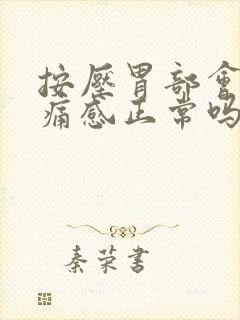 按壓胃部會
痛感正常吗
秦荣書